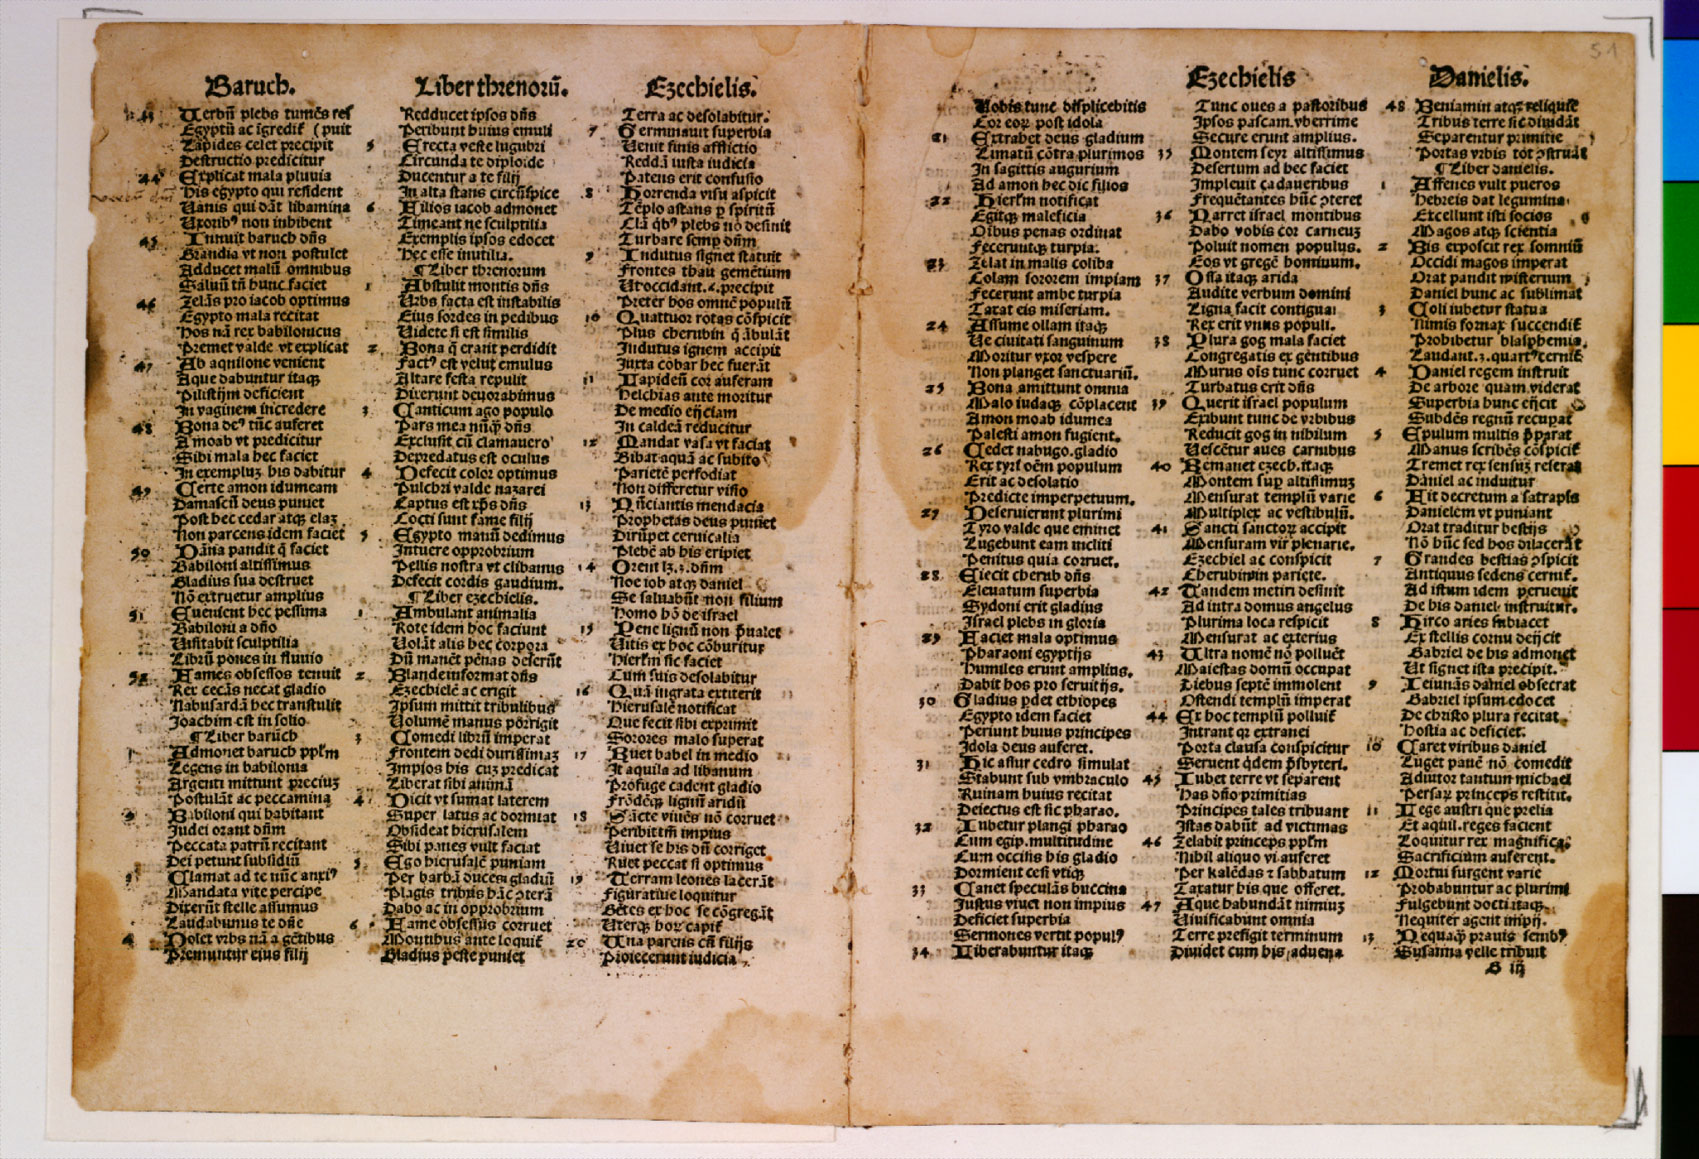 Baruch.
43 Verbū plebs tumēs res
Egyptū ac īgredit̄ (puit
Lapides celet precipit
Destructio predicitur
44 Explicat mala pluvia
His egypto qui resident
Vanis qui dāt libamina
Vxorib⁹ non inhibent
45 Innuit baruch dn̄s
Grandia vt non postulet
Adducet malū omnibus
Saluū tn̄ hunc faciet
46 Zelās pro iacob optimus
Egypto mala recitat
Hos nā rex babilonicus
Premet valde vt explicat
47 Ab aquilone venient
Aque dabuntur itaqꝫ
Pilistijm deficient
In vaginem incredere
48 Bona de⁹ tūc auferet
A moab vt predicitur
Sibi mala hec faciet
In exempluꝫ his dabitur
49 Certe amon idumeam
Damascū deus puniet
Post hec cedar atqꝫ elaꝫ
Non parcens idem faciet
50 Dāna pandit q̄ faciet
Babiloni altissimus
Gladius sua destruet
Nō extruetur amplius
51 Euenient hec pessima
Babiloni a dn̄o
Visitabit sculptilia
Librū pones in fluuio
52 Fames obsessos tenuit
Rex cecās necat gladio
Nabusardā hec transtulit
Joachim est in solio
¶ Liber barūch
1 Admonet baruch pp̄lm
Legens in babilonia
Argenti mittunt preciuꝫ
Postulāt ac peccamina
2 Babiloni qui habitant
Judei orant dn̄m
Peccata patrū recitant
Dei petunt subsidiū
3 Clamat ad te nūc anxi⁹
Mandata vite percipe
Dixerūt stelle assumus
Laudabimus te dn̄e
4 Dolet vrbs nā a gētibus
Premuntur eius filij
Liber threnorū.
Redducet ipsos dn̄s
Peribunt huius emuli
5 Erecta veste lugubri
Circunda te diploide
Ducentur a te filij
In alta stans circūspice
6 Filios iacob admonet
Timeant ne sculptilia
Exemplis ipsos edocet
Hec esse inutilia.
¶ Liber threnorum
1 Abstulit montis dn̄s
Vrbs facta est instabilis
Eius sordes in pedibus
Videte si est similis
2 Bona q̄ erant perdidit
Fact⁹ est velut emulus
Altare festa repulit
Dixerunt deuorabimus
3 Canticum ago populo
Pars mea nūqꝫ dn̄s
Exclusit cū clamauero
Depredatus est oculus
4 Defecit color optimus
Pulchri valde nazarei
Captus est xp̄s dn̄s
Cocti sunt fame filij
5 Egypto manū dedimus
Intuere opprobrium
Pellis nostra vt clibanus
Defecit cordis gaudium.
¶ Liber ezechielis.
1 Ambulant animalia
Rote idem hoc faciunt
Volāt alis hec corpora
Dū manēt penas deserūt
2 Blande informat dn̄s
Ezechielē ac erigit
Ipsum mittit tribulibus
Volumē manus porrigit
3 Comedi librū imperat
Frontem dedi durissimaꝫ
Impios his cuꝫ predicat
Liberat sibi animā
4 Dicit vt sumat laterem
Super latus ac dormiat
Obsideat hierusalem
Sibi panes vult faciat
5 Ego hierusalē puniam
Per barbā duces gladiū
Plagis tribus hāc ↄterā
Dabo ac in opprobrium
6 Fame obsessus corruet
Montibus ante loquit̄
Gladius peste puniet
Ezechielis.
Terra ac desolabitur.
7 Germinauit superbia
Venit finis afflictio
Reddā iusta iudicia
Patens erit confusio
8 Horrenda visu aspicit
Tēplo astans p spiritū
Elā qb⁹ plebs nō desinit
Turbare semp dn̄m
9 Indutus signet statuit
Frontes thau gemētium
Vt occidant.6.precipit
Preter hos omnē populū
10 Quattuor rotas cōspicit
Plus cherubin q̄ābulāt
Indutus ignem accipit
Juxta cobar hec fuerāt
11 Lapideū cor auferam
Helchias ante moritur
De medio eijciam
In caldeā reducitur
12 Mandat vasa vt faciat
Bibat aquā ac subito
Parietē perfodiat
Non differetur visio
13 Nūciantis mendacia
Prophetas deus puniet
Dirupet ceruicalia
Plebē ab his eripiet
14 Orent lꝫ.3.dn̄m
Noe iob atqꝫ daniel
Se saluabūt non filium
Homo hō de israel
15 Pene lignū non p̄ualet
Vitis ex hoc cōburitur
Hierl̄m sic faciet
Cum suis desolabitur
16 Quā ingrata extiterit
Hierusalē notificat
Que fecit sibi exprimit
Sorores malo superat
17 Ruet babel in medio
It aquila ad libanum
Profuge cadent gladio
Frōdēqꝫ lignū aridū
18 Sācte viuēs nō corruet
Peribit tm̄ impius
Viuet se his dū corriget
Ruet peccat si optimus
19 Terram leones lacerāt
Figuratiue loquitur
Gētes ex hoc se cōgregāt
Vterqꝫ hoꝝ capit̄
20 Vna parens cū filijs
Proiecerunt iudicia
51
Ezechielis
Vobis tunc displicebitis
Cor eoꝝ post idola
21 Extrahet deus gladium
Limatū cōtra plurimos
In sagittis augurium
Ad amon hec dic filios
22 Hierl̄m notificat
Egitqꝫ maleficia
Oībus penas ordinat
Feceruntqꝫ turpia.
23 Zelat in malis coliba
Colam sororem impiam
Fecerunt ambe turpia
Taxat eis miseriam.
24 Assume ollam itaqꝫ
Ve ciuitati sanguinum
Moritur vxor vespere
Non planget sanctuariū.
25 Bona amittunt omnia
Malo iudaqꝫ cōplacent
Amon moab idumea
Palesti amon fugient.
26 Cedet nabugo.gladio
Rex tyri oēm populum
Erit ac desolatio
Predicte imperpetuum.
27 Deseruierunt plurimi
Tyro valde que eminet
Lugebunt eam incliti
Penitus quia corruet.
28 Eiecit cherub dn̄s
Eleuatum superbia
Sydoni erit gladius
Israel plebs in gloria
29 Faciet mala optimus
Pharaoni egyptijs
Humiles erunt amplius.
Dabit hos pro seruitijs.
30 Gladius p̱det ethiopes
Egypto idem faciet
Periunt huius principes
Idola deus auferet.
31 Hic assur cedro simulat
Stabunt sub vmbraculo
Ruinam huius recitat
Deiectus est sic pharao.
32 Iubetur plangi pharao
Cum egip.multitudine
Cum occisis his gladio
Dormient cesi vtiqꝫ
33 Canet speculās buccina
Justus viuet non impius
Deficiet superbia
Sermones vertit popul⁹
34 Liberabuntur itaqꝫ
Tunc oues a pastoribus
Ipsos pascam vberrime
Secure erunt amplius.
35 Montem seyr altissimus
Desertum ad hec faciet
Impleuit cadaueribus
Frequētantes hūc ↄteret
36 Narret israel montibus
Dabo vobis cor carneuꝫ
Poluit nomen populus.
Eos vt gregē hominum.
37 Ossa itaqꝫ arida
Audite verbum domini
Ligna facit contigua
Rex erit vnus populi.
38 Plura gog mala faciet
Congregatis ex gentibus
Murus oīs tunc corruet
Turbatus erit dn̄s
39 Querit israel populum
Exibunt tunc de vrbibus
Reducit gog in nihilum
Vescētur aues carnibus
40 Remanet ezech.itaqꝫ
Montem sup altissimuꝫ
Mensurat templū varie
Multiplex ac vestibulū.
41 Sancti sanctoꝝ accipit
Mensuram vir plenarie.
Ezechiel ac conspicit
Cherubinin pariete.
42 Tandem metiri desinit
Ad intra domus angelus
Plurima loca respicit
Mensurat ac exterius
43 Vltra nomē nō polluēt
Maiestas domū occupat
Diebus septē immolent
Ostendi templū imperat
44 Ex hoc templū polluit̄
Intrant qꝫ extranei
Porta clausa conspicitur
Seruent q̄dem p̄sbyteri.
45 Iubet terre vt separent
Has dn̄o primitias
Principes tales tribuant
Istas dabūt ad victimas
46 Zelabit princeps pp̄lm
Nihil aliquo vi auferet
Per kalēdas ⁊ sabbatum
Taxatur his que offeret.
47 Aque habundāt nimiuꝫ
Viuificabunt omnia
Terre prefigit terminum
Diuidet cum his aduena
Danielis.
48 Beniamin atqꝫ reliquise
Tribus terre sic diuidāt
Separentur primitie
Portas vrbis tōt ↄstruāt
¶ Liber danielis.
1 Assenes vult pueros
Hebreis dat legumina
Excellunt isti socios
Magos atqꝫ scientia
2 Bis exposcit rex somniū
Occidi magos imperat
Orat pandit misterium
Daniel hunc ac sublimat
3 Coli iubetur statua
Nimis fornax succendit̄
Prohibetur blasphemia.
Laudant.3.quart⁹cernit̄
4 Daniel regem instruit
De arbore quam viderat
Superbia hunc eijcit
Subdēs regnū recupat
5 Epulum multis p̄parat
Manus scribēs cōspicit̄
Tremet rex sensuꝫ reserat
Daniel ac induitur
6 Fit decretum a satrapis
Danielem vt puniant
Orat traditur bestijs
Nō hūc sed hos dilacerāt
7 Grandes bestias ↄspicit
Antiquus sedens cernit̄.
Ad istum idem peruenit
De his daniel instruitur.
8 Hirco aries subiacet
Ex stellis cornu deijcit
Gabriel de his admonet
Vt signet ista precipit.
9 Ieiunās daniel obsecrat
Gabriel ipsum edocet
De christo plura recitat
Hostia ac deficiet.
10 Caret viribus daniel
Luget panē nō comedit
Adiutor tantum michael
Persaꝝ princeps restitit.
11 Lege austri que prelia
Et aquil.reges facient
Loquitur rex magnifica
Sacrificium auferent.
12 Mortui surgent varie
Probabuntur ac plurimi
Fulgebunt docti itaqꝫ
Nequiter agent impij.
13 Nequaqꝫ prauis semb⁹
Susanna velle tribuit
G iij